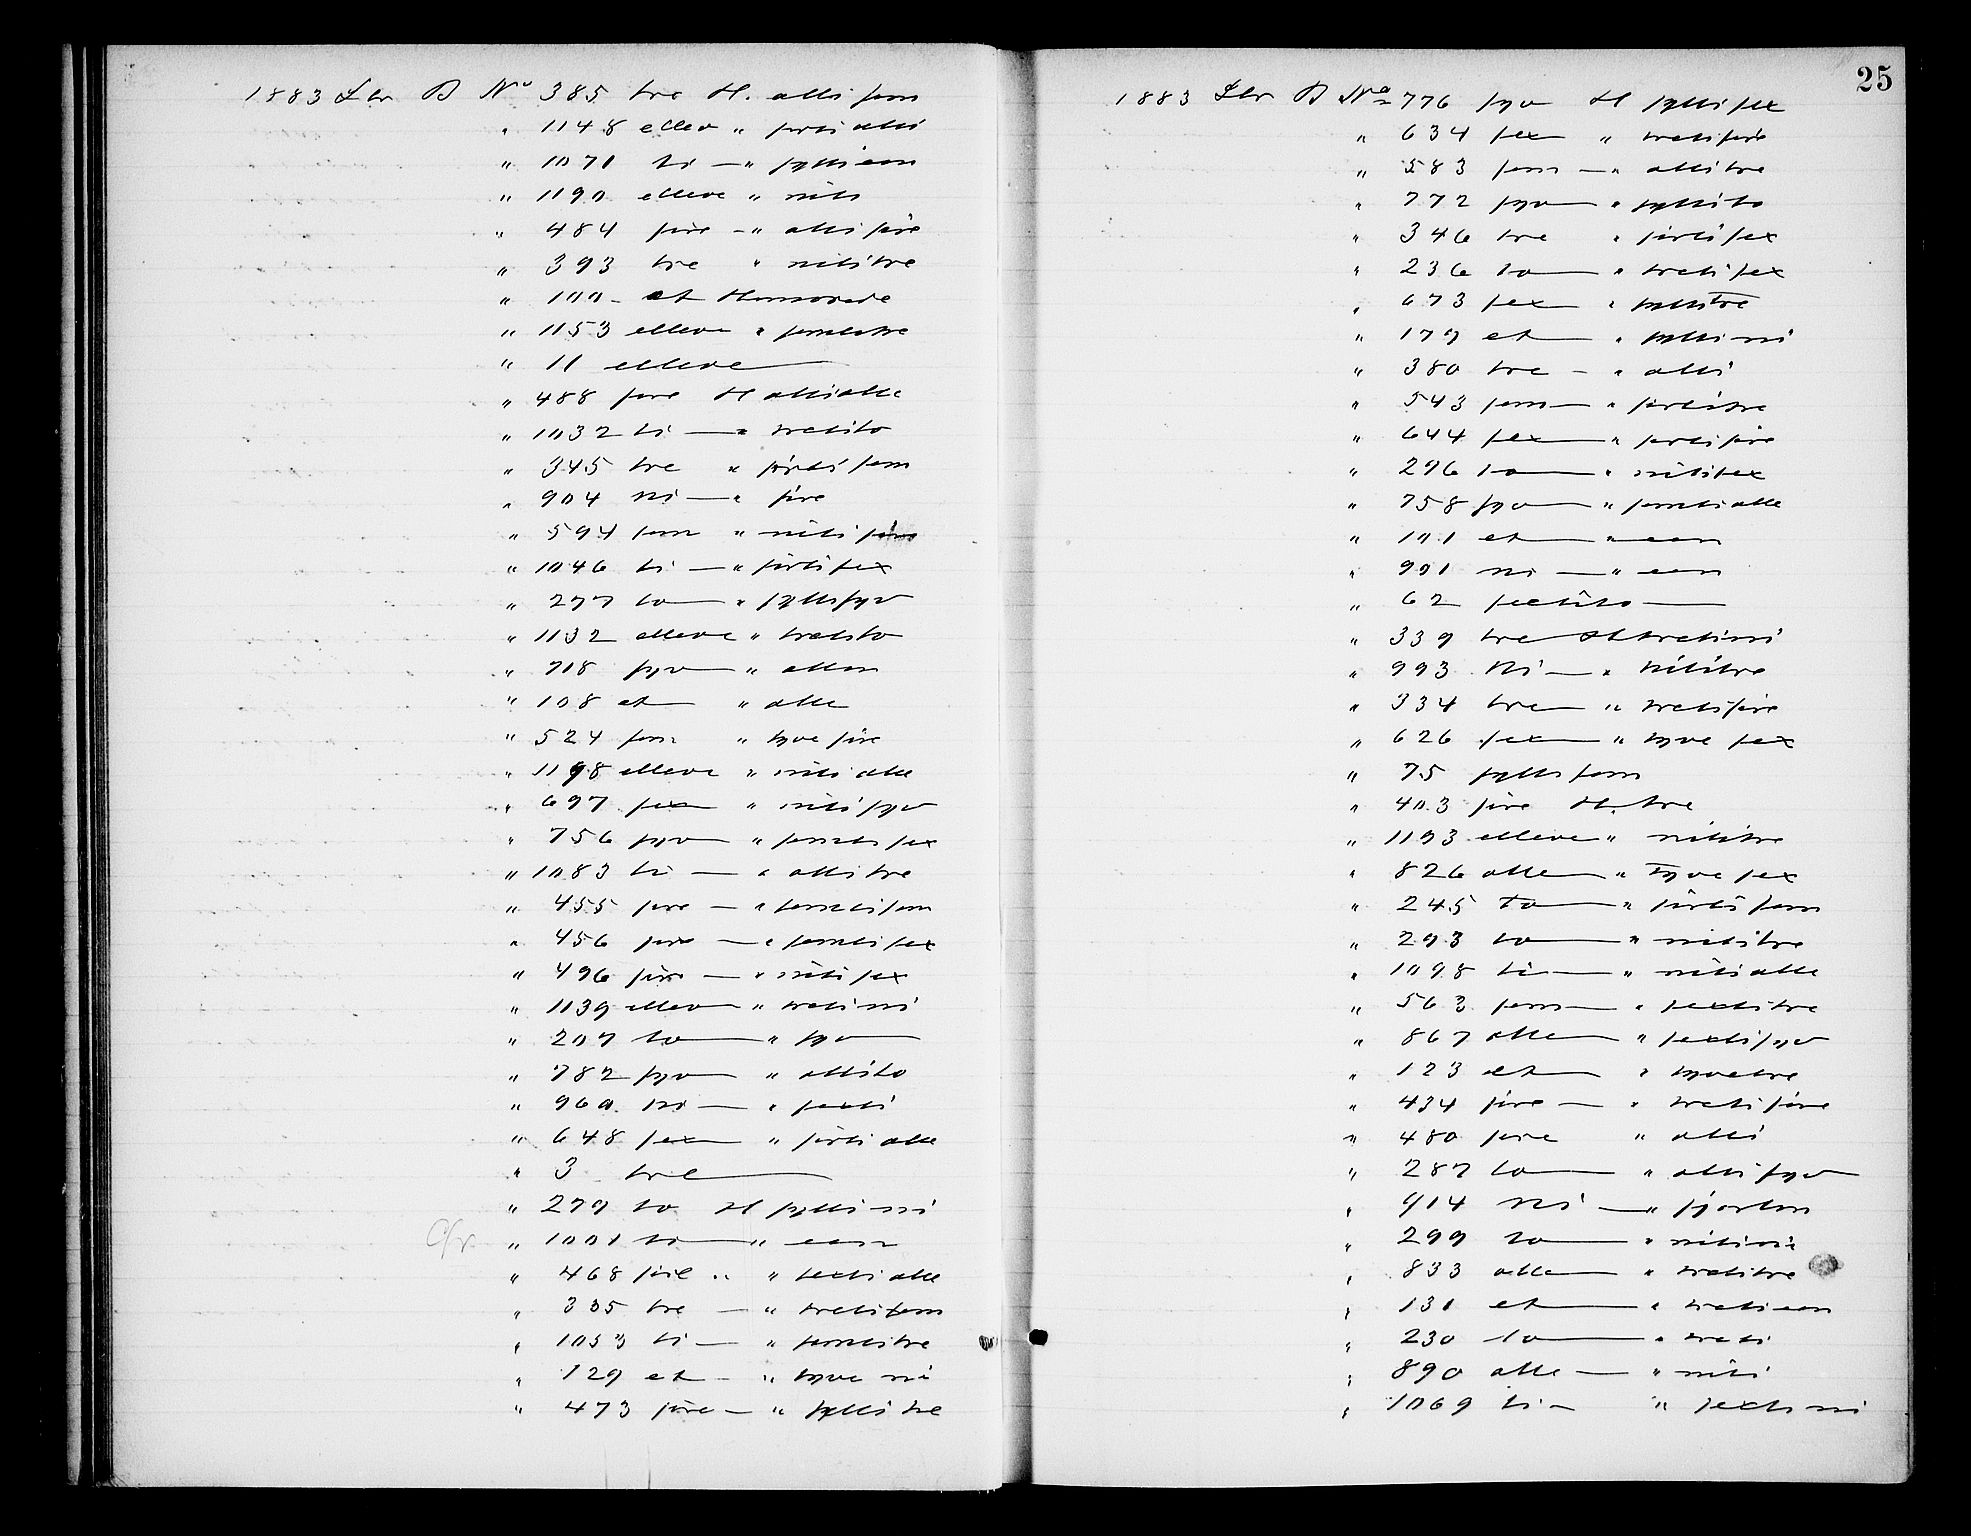 1883 Ltr B No 385 tre H. otti fem
" 1148 elleve " førti otti
" 1071 ti — " sytti een
" 1190 elleve " niti
" 484 fire — " otti fire
" 393 tre " nititre
" 100 - et Hunorede
" 1153 elleve " femtitre
" 11 elleve —
" 488 fire H ottiotte
" 1032 ti — " tretito
" 345 tre " førti fem
" 904 ni — " fire
" 594 fem " niti
" 1046 ti — " førti sex
" 277 to — " sytti syv
" 1132 elleve " tretito
" 718 syv — " atten
" 108 et — " otte
" 524 fem " tyve fire
" 1198 elleve " niti otte
" 697 sex — " niti syv
" 756 syv — " femti sex
" 1083 ti — " otti tre
" 455 fire — " femti fem
" 456 fire — " femti sex
" 496 fire — " niti sex
" 1139 elleve — " treti ni
" 207 to — " syv —
" 782 syv — " ottito
" 960 ni — " sexti
" 648 sex — " førti otte
" 3 tre —
" 279 to H sytti ni
" 1001 ti — " een
" 468 fire .. " sexti otte
" 335 tre — " treti fem
" 1053 ti — " femtitre
" 129 et — " tyve ni
" 473 fire — " sytti tre
25
1883 Ltr B No 776 syv H sytti sex
" 634 sex — " tretifire
" 583 fem — " ottitre
" 772 syv — " syttito
" 346 tre " førti sex
" 236 to — " treti sex
" 673 sex — " syttitre
" 179 et — " sytti ni
" 380 tre — " otti
" 543 fem — " førtitre
" 644 sex — " førti fire
" 296 to — " nitisex
" 758 syv — " femtiotte
" 101 et — " een
" 901 ni — " een
" 62 sextito —
" 339 tre — H tretini
" 993 Ni — " nititre
" 334 tre — " tretifire
" 626 sex — " tyve sex
" 75 sytti fem
" 403 fire H. tre
" 1193 elleve " nititre
" 826 otte — " Tyve sex
" 245 to — " førti fem
" 293 to — " nititre
" 1098 ti — " niti otte
" 563 fem — " sextitre
" 867 otte — " sexti syv
" 123 et — " tyvetre
" 434 fire — " treti fire
" 480 fire " otti
" 287 to — " otti syv
" 914 Ni — " fjorten
" 299 to — " niti ni
" 833 otte — " tretitre
" 131 et — " treti een
" 230 to — " treti
" 890 otte — " niti
" 1069 ti — " sexti ni